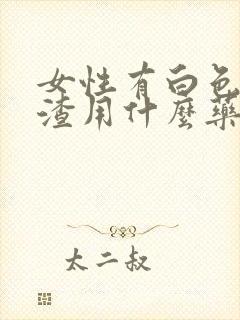 女性有白色
渣用什麼藥
太二叔